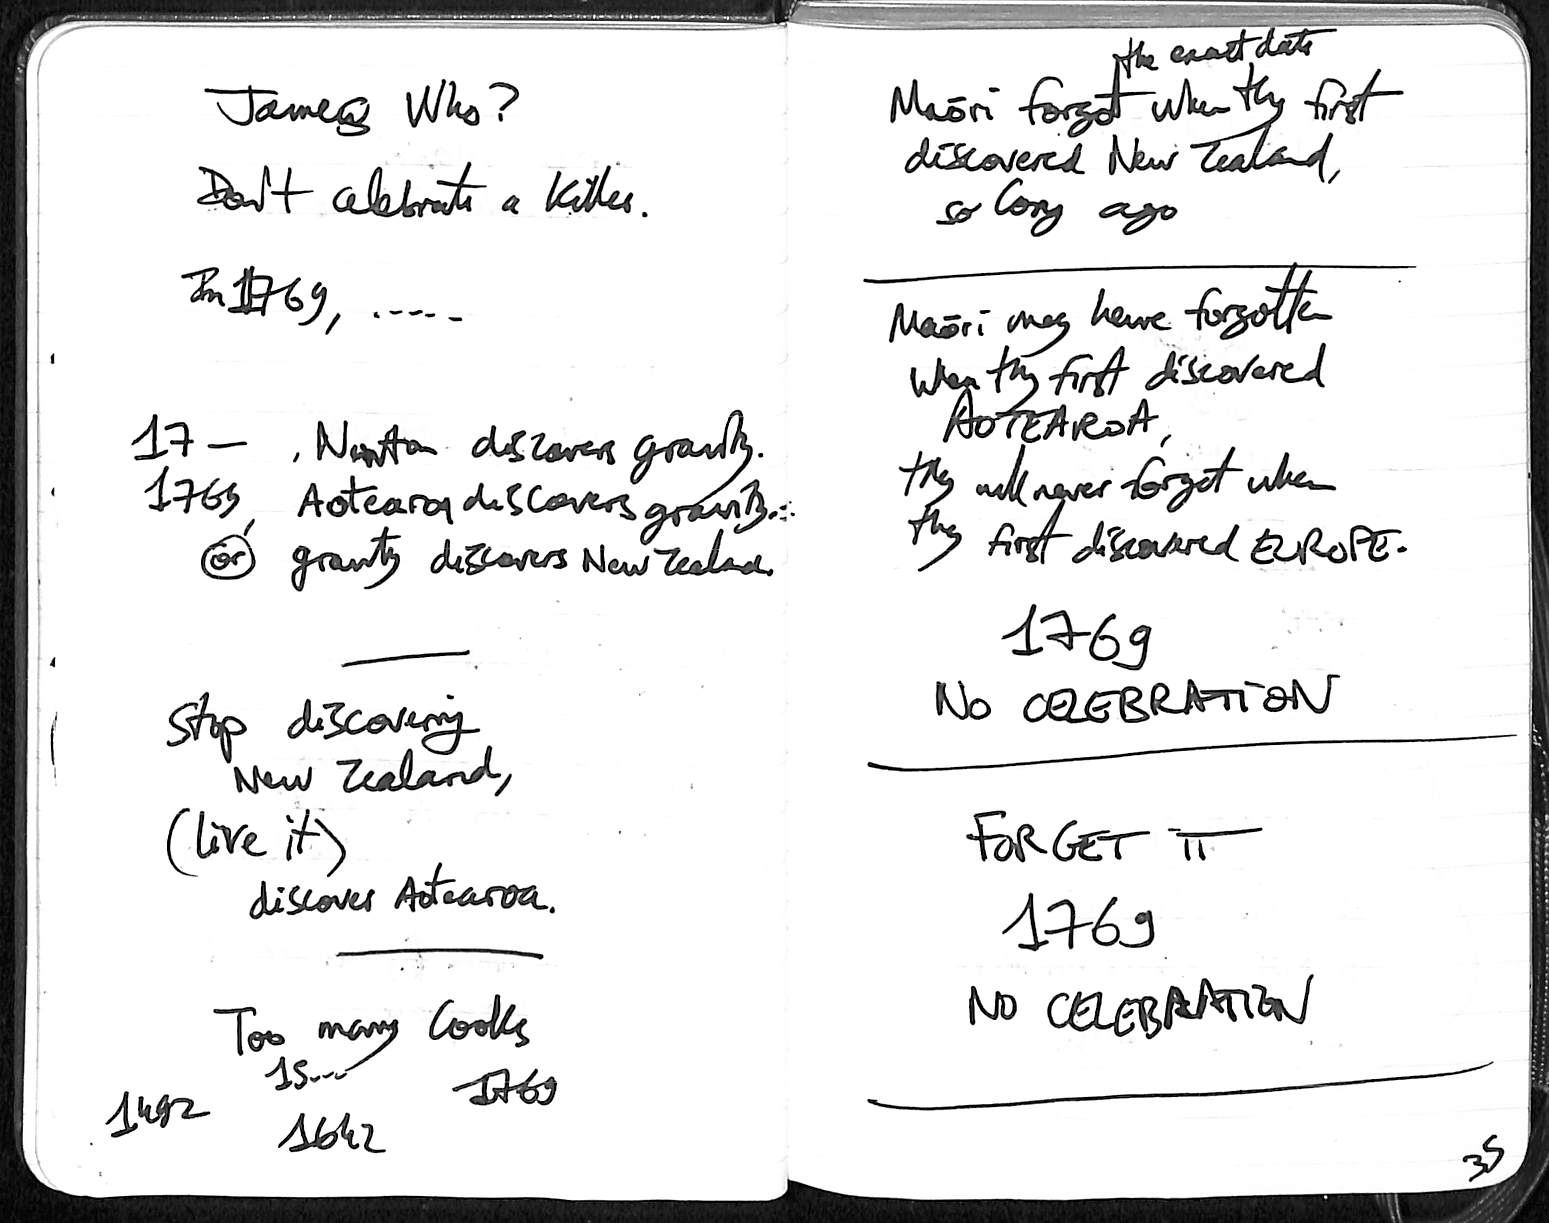 James Who?
Don't celebrate a killer.
In 1769, .....
17— , Newton discovers gravity.
1769, Aotearoa discovers gravity...
or gravity discovers New Zealand.
Stop discovering
New Zealand,
(live it)
discover Aotearoa.
Too many Cooks
15....
1769
1492
1642
the exact date
Maōri forgot when they first
discovered New Zealand,
so long ago
Maōri may have forgotten
when they first discovered
AOTEAROA,
they will never forget when
they first discovered EUROPE.
1769
NO CELEBRATION
FORGET IT
1769
NO CELEBRATION
35